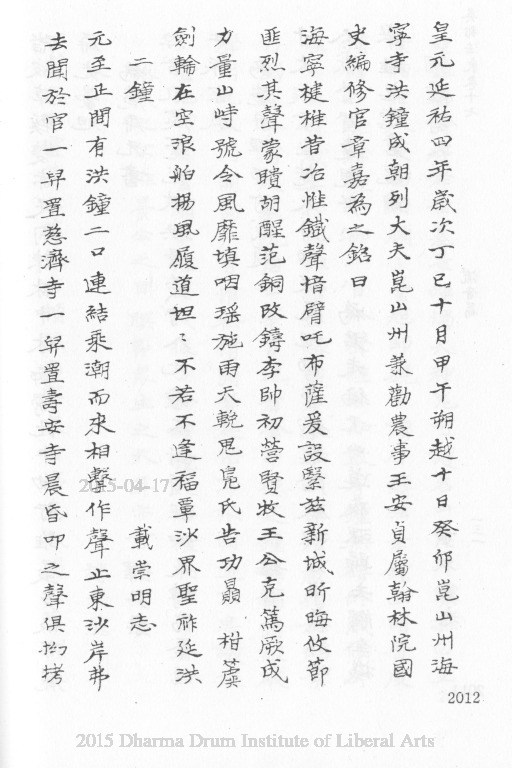 皇元延祐四年歲次丁巳十月甲午朔越十日癸卯崑山州海
寧寺洪鐘成朝列大夫崑山州兼勸農事王安貞屬翰林院國
史編修官章嘉為之銘曰
海寧楗椎昔冶惟鐵聲愔臂吒布薩爰設緊茲新城昕晦攸節
匪烈其聲蒙瞶胡醒范銅改鑄李帥初營賢牧王公克篤厥成
力量山峙號令風靡填咽瑤施雨天輓鬼鳧氏告功贔柎簴
劍輪在空浪舶揚風履道坦不若不逢福覃沙界聖祚延洪
二鐘 載崇明志
元至正間有洪鐘二口連結乘潮而來相擊作聲止東沙岸弗
去聞於官一舁置慈濟寺一舁置壽安寺晨昏叩之聲俱拷
2015-04-17
2012
2015 Dharma Drum Institute of Liberal Arts